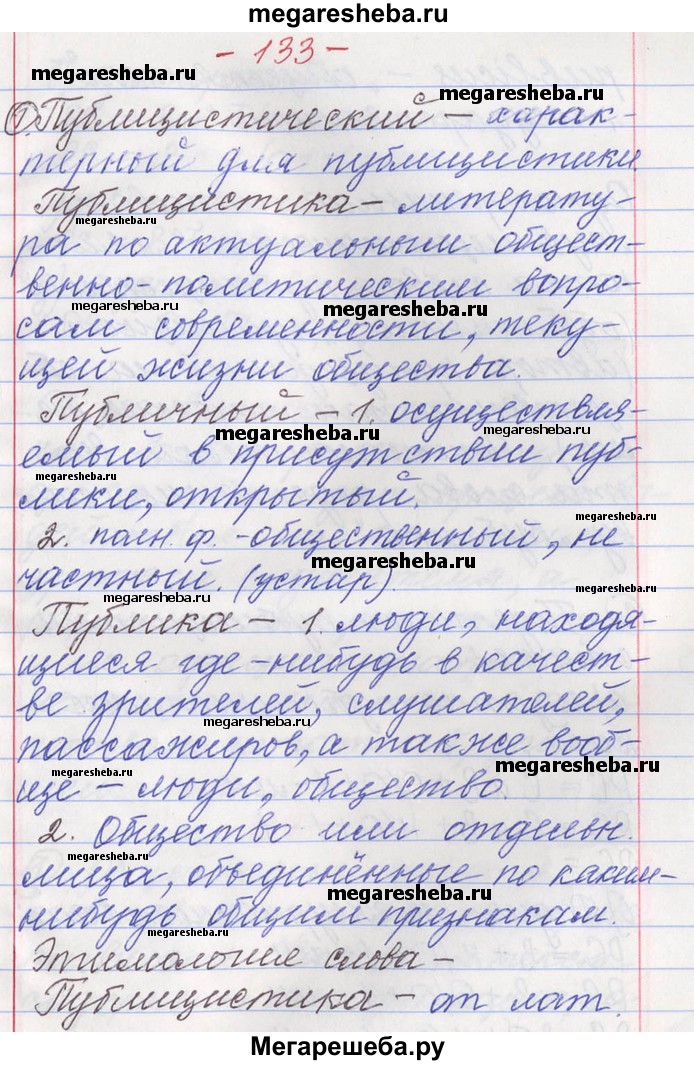 megaresheba.ru
- 133 -
megaresheba.ru
megaresheba.ru
① Публицистический – харак-
терный для публицистики.
Публицистика – литерату-
megaresheba.ru
ра по актуальным общест-
венно-политическим вопро-
megaresheba.ru
megaresheba.ru
сам современности, теку-
щей жизни общества.
Публичный – 1. осуществля-
megaresheba.ru
емый в присутствии пуб-
megaresheba.ru
лики, открытый.
megaresheba.ru
2. полн. ф. - общественный, не
частный. (устар).
megaresheba.ru
megaresheba.ru
Публика – 1. люди, находя-
щиеся где-нибудь в качест-
ве зрителей, слушателей,
megaresheba.ru
пассажиров, а также вооб-
megaresheba.ru
megaresheba.ru
ще – люди, общество.
2. Общество или отдельн.
лица, объединённые по каким-
megaresheba.ru
нибудь общим признакам.
megaresheba.ru
Этимология слова –
Публицистика – от лат.
Мегарешеба.ру